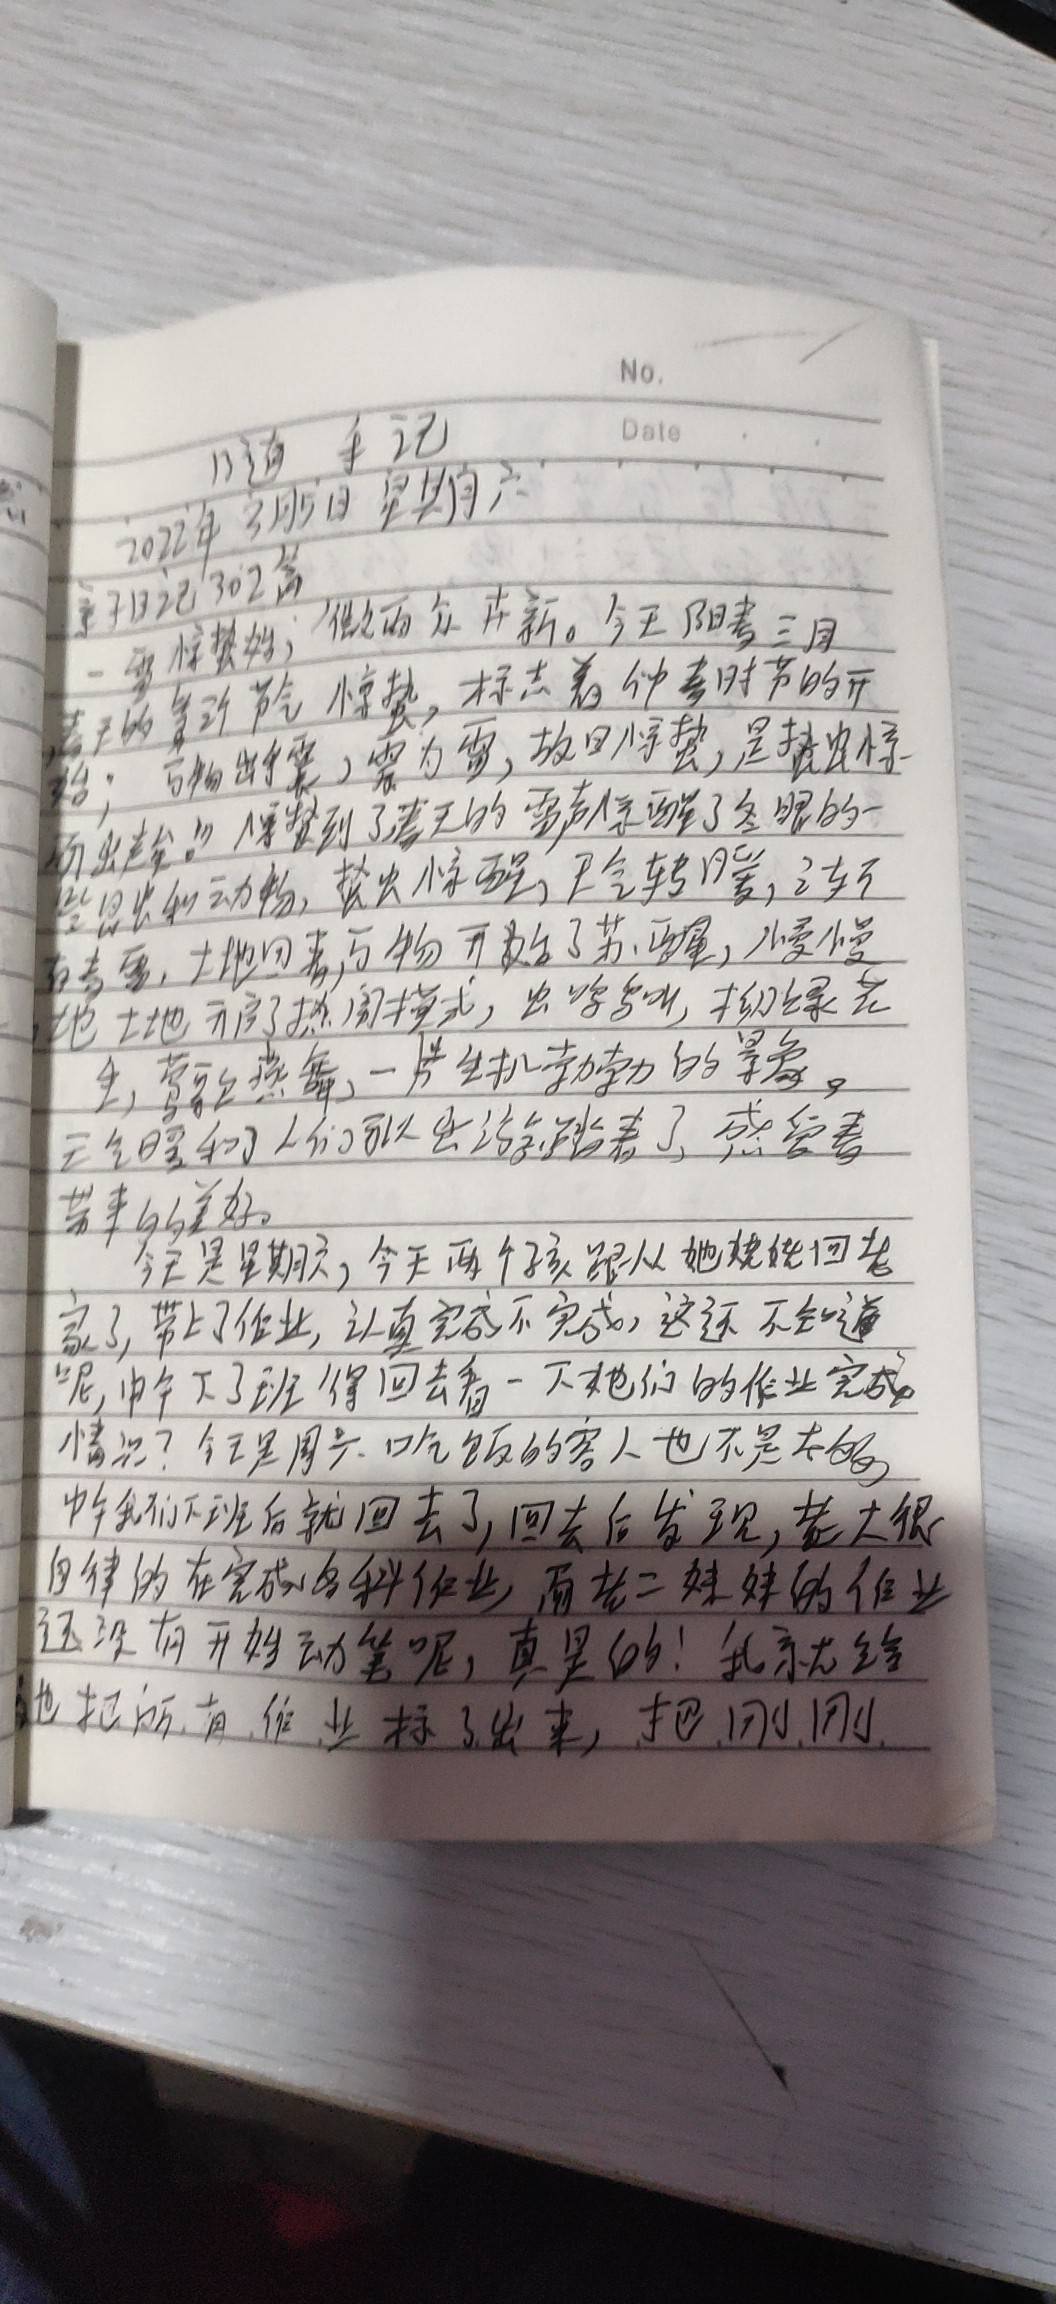 No.
Date
日道 手记
2022年 3月5日 星期六
亲子日记302篇
一雷惊蛰始；微雨众卉新。今天阳春三月
春天的第三个节气 惊蛰，标志着仲春时节的开
始；万物出乎震，震为雷，故曰惊蛰，是蛰虫惊
而出走。” 惊蛰到了春天的雷声惊醒了冬眠的一
些昆虫和动物，蛰虫惊醒，天气转暖，渐
有春雷，土地回春，万物开始了苏醒，慢慢
地 土地 开启了热闹模式，虫鸣 柳绿花
莺歌燕舞，一片生机勃勃的景象。
天气暖和了人们可以出游踏春了，感受春
带来的美好。
今天是星期六，今天两个孩跟从她姥姥回老
家了，带上了作业，认真完成不完成，这还不知道
呢，中午下了班得回去看一下她们的作业完成
情况？今天是周六．吃饭的客人也不是太多，
中午我们下班后就回去了，回去后发现，老大很
自律的在完成各科作业，而老二妹妹的作业
还没有开始动笔呢，真是的！我就给
她把所有作业标了出来，把刚刚